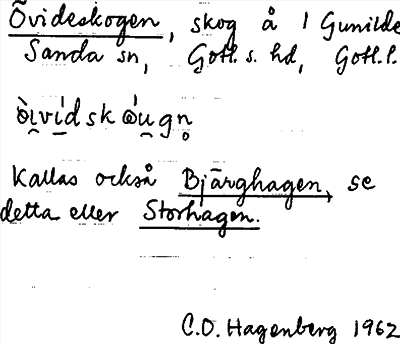 Övideskogen, skog å 1 Gunilde
Sanda sn, Gotl. s. hd, Gotl. l.
òi̯vìdskòu̯gn̥
Kallas också Bjärghagen, se
detta eller Storhagen.
C.O. Hagenberg 1962